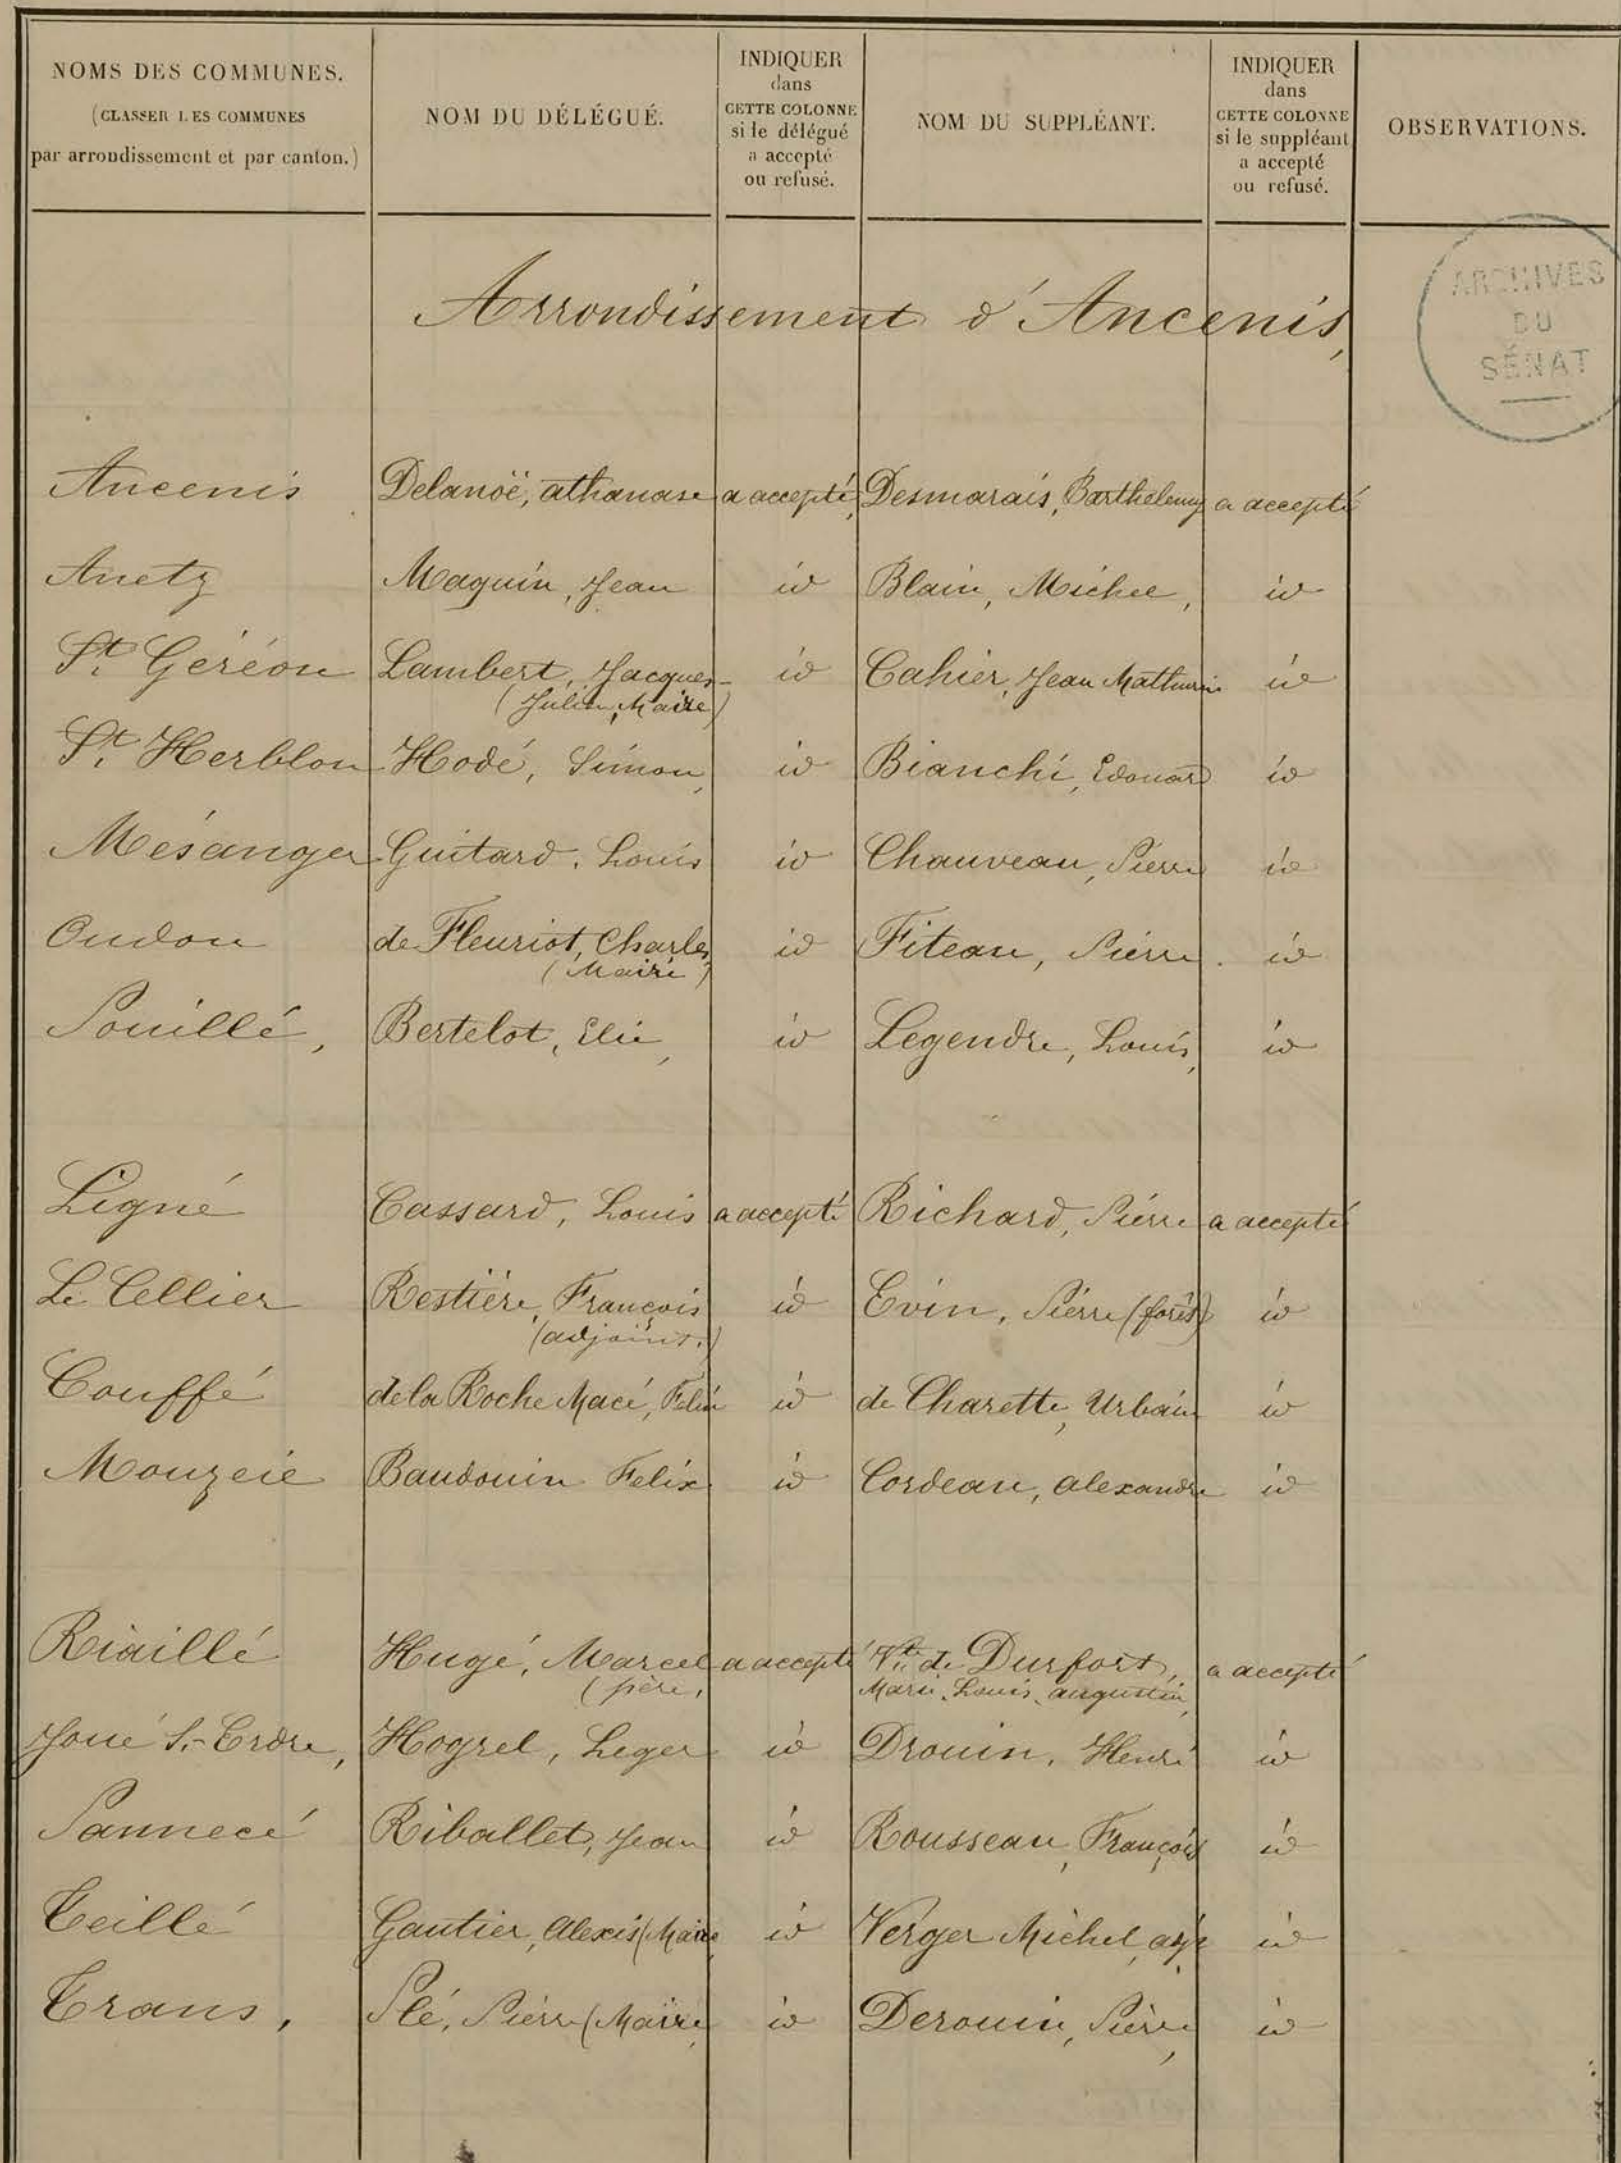 NOMS DES COMMUNES.
(CLASSER LES COMMUNES
par arrondissement et par canton.)
NOM DU DÉLÉGUÉ.
INDIQUER
dans
CETTE COLONNE
si le délégué
a accepté
ou refusé.
NOM DU SUPPLÉANT.
INDIQUER
dans
CETTE COLONNE
si le suppléant
a accepté
ou refusé.
OBSERVATIONS.
ARCHIVES
DU
SÉNAT
Arrondissement d'Ancenis,
Ancenis Delanoë, athanase a accepté, Desmarais, Barthelemy a accepté
Anetz Maquin, Jean id Blain, Michel, id
St. Géréon Lambert, Jacques- id Cahier, Jean Mathurin id
(Julien, Maire)
St. Herblon Hodé, Simon, id Bianchi, Edouard id
Mésanger Guitard, Louis id Chauveau, Pierre id
Oudon de Fleuriot, Charles, id Fiteau, Pierre. id
(Maire)
Pouillé, Bertelot, Elie, id Legendre, Louis, id
Ligné Cassard, Louis a accepté Richard, Pierre a accepté
Le Cellier Restière, François id Evin, Pierre (forêt) id
(adjoint.)
Couffé de la Roche Macé, Felix id de Charette, Urbain id
Mouzeil Baudouin Felix id Cordeau, alexandre id
Riaillé Hugé, Marcel a accepté Vte de Durfort, a accepté
(père, Marie, Louis, augustin,
Joué S.-Erdre, Hogrel, Leger id Drouin, Henri id
Pannecé Riballet, Jean id Rousseau, François id
Teillé Gautier, Alexis (Maire id Verger Michel, adjt id
Trans, Plé, Pierre (Maire, id Derouin, Pierre, id